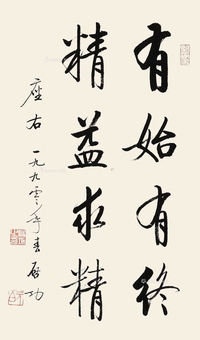 有始有终
精益求精
座右 一九九零年春 启功